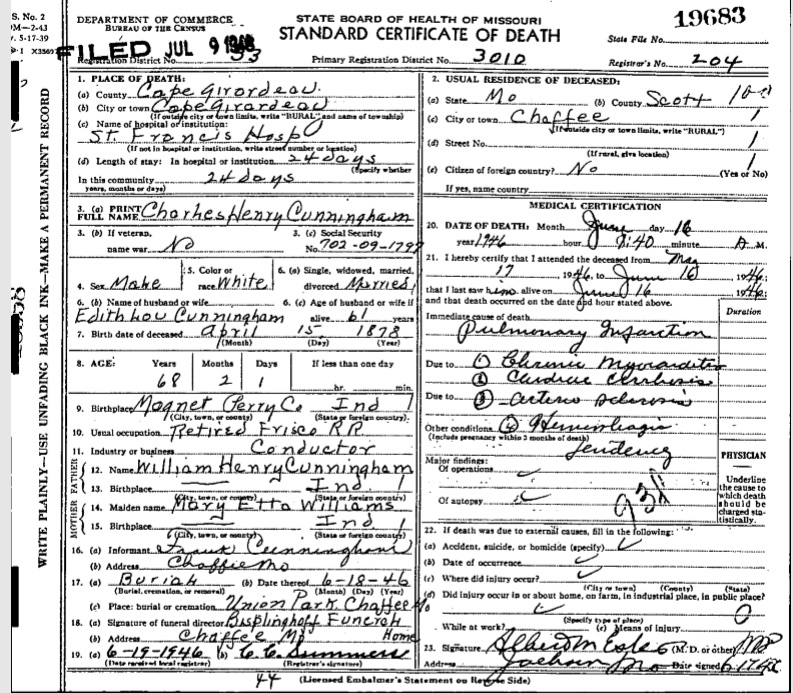 S. No. 2
DM-2-43
v. 5-17-39
DEPARTMENT OF COMMERCE
BUREAU OF THE CENSUS
STATE BOARD OF HEALTH OF MISSOURI
STANDARD CERTIFICATE OF DEATH
19683
State File No.
FILED JUL 9 1946
Registration District No. 53
Primary Registration District No. 3010
Registrar's No. 204
WRITE PLAINLY—USE UNFADING BLACK INK—MAKE A PERMANENT RECORD
1. PLACE OF DEATH:
(a) County Cape Girardeau
(b) City or town Cape Girardeau
(If outside city or town limits, write "RURAL" and name of township)
(c) Name of hospital or institution:
St. Francis Hosp
(If not in hospital or institution, write street number or location)
(d) Length of stay: In hospital or institution 24 days
(Specify whether
In this community 24 days
years, months or days)
2. USUAL RESIDENCE OF DECEASED:
(a) State Mo (b) County Scott
(c) City or town Chaffee 1
(If outside city or town limits, write "RURAL")
(d) Street No. 1
(If rural, give location)
(e) Citizen of foreign country? No (Yes or No)
If yes, name country
3. (a) PRINT FULL NAME Charles Henry Cunningham
3. (b) If veteran, name war No
3. (c) Social Security No. 702-09-1797
4. Sex Male
5. Color or race White
6. (a) Single, widowed, married, divorced Married
6. (b) Name of husband or wife
Edith Lou Cunningham
6. (c) Age of husband or wife if alive 61 years
7. Birth date of deceased April 15 1878
(Month) (Day) (Year)
8. AGE: Years Months Days If less than one day
68 2 1 hr. min.
9. Birthplace Magnet Perry Co Ind 1
(City, town, or county) (State or foreign country)
10. Usual occupation Retired Frisco RR
11. Industry or business Conductor
FATHER
12. Name William Henry Cunningham
13. Birthplace Ind 1
(City, town, or county) (State or foreign country)
MOTHER
14. Maiden name Mary Etta Williams
15. Birthplace Ind 1
(City, town, or county) (State or foreign country)
16. (a) Informant Frank Cunningham
(b) Address Chaffee Mo
17. (a) Burial (b) Date thereof 6-18-46
(Burial, cremation, or removal) (Month) (Day) (Year)
(c) Place: burial or cremation Union Park Chaffee Mo
18. (a) Signature of funeral director Bisplinghoff Funeral
(b) Address Chaffee Mo Home
19. (a) 6-19-1946 (b) C. C. Summers
(Date received local registrar) (Registrar's signature)
MEDICAL CERTIFICATION
20. DATE OF DEATH: Month June day 16
year 1946 hour 8:40 minute A M.
21. I hereby certify that I attended the deceased from May
17 1946, to June 16 1946;
that I last saw him alive on June 16 1946;
and that death occurred on the date and hour stated above.
Duration
Immediate cause of death
Pulmonary Infarction
Due to (1) Chronic Myocarditis
(2) Cardiac Cirrhosis
Due to (3) Arterio Sclerosis
Other conditions (4) Hemorrhagic
(Include pregnancy within 3 months of death)
Tendency
Major findings:
Of operations
Of autopsy
PHYSICIAN
Underline the cause to which death should be charged statistically.
22. If death was due to external causes, fill in the following:
(a) Accident, suicide, or homicide (specify)
(b) Date of occurrence
(c) Where did injury occur?
(City or town) (County) (State)
(d) Did injury occur in or about home, on farm, in industrial place, in public place?
(Specify type of place)
While at work? (e) Means of injury
23. Signature Albert M Estes (M.D. or other) MD
Address Jackson Mo Date signed 6-17-46
44 (Licensed Embalmer's Statement on Reverse Side)